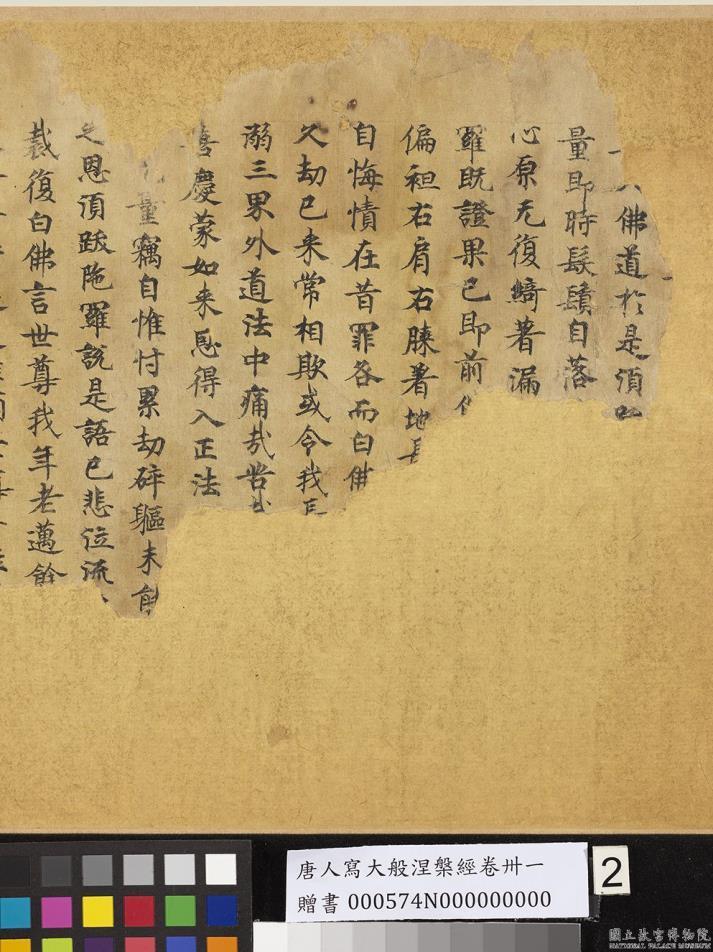 佛道於是須跋
量即時鬚鬢自落
心原无復綺著漏
羅既證果已即前
偏袒右肩右膝著地長
自悔憒在昔罪咎而白佛
久劫已来常相欺或令我長
溺三界外道法中痛哉苦哉
喜慶蒙如来恩得入正法
量竊自惟忖累劫碎軀未能
恩湏跋陁羅說是語已悲泣流
裁復白佛言世尊我年老邁餘
唐人寫大般涅槃經卷卅一
贈書 000574N000000000
2
國立故宮博物院
NATIONAL PALACE MUSEUM